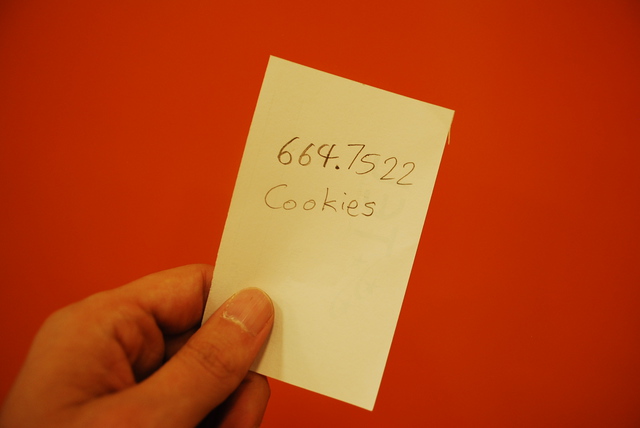 664.7522
Cookies